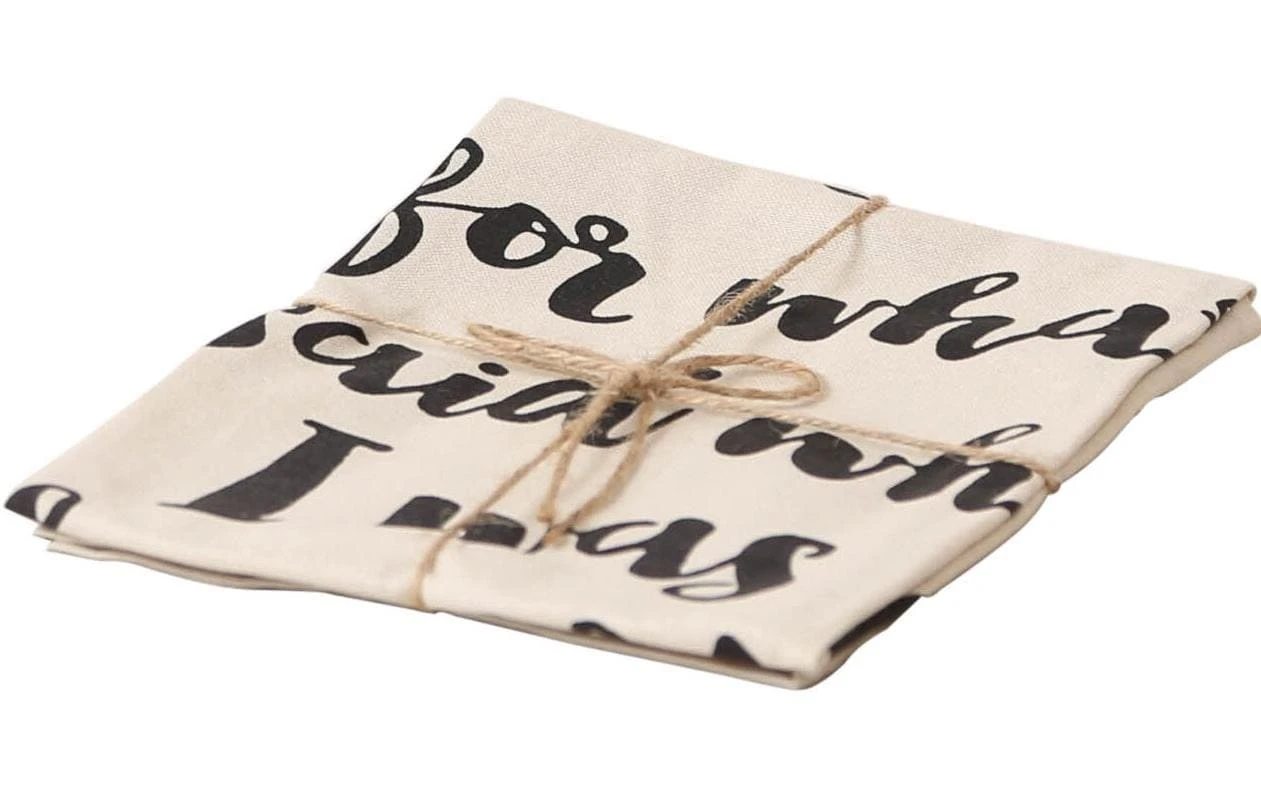 for wha
said wh
I was